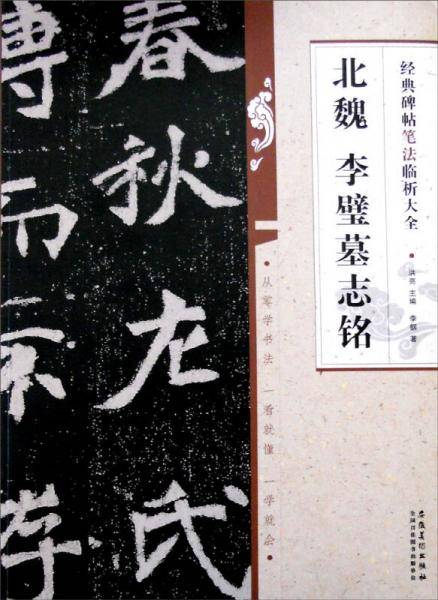 经典碑帖笔法临析大全
北魏 李璧墓志铭
洪亮 主编 李郁 著
•从零学书法 一看就懂 一学就会•
春秋左氏
專而不存
安徽美术出版社
全国百佳图书出版单位